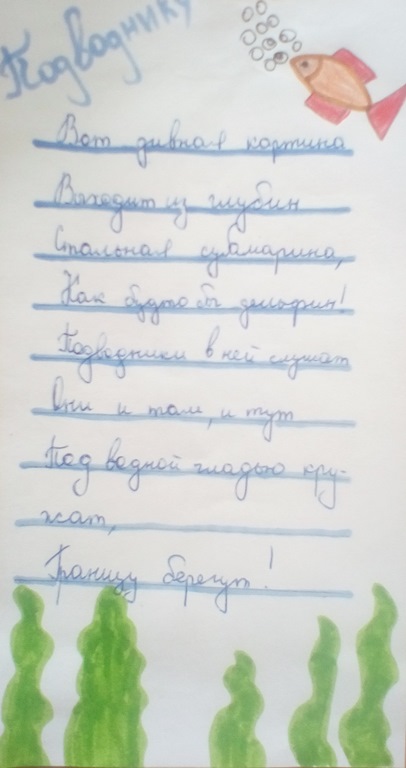 Подводнику
Вот дивная картина
Выходит из глубин
Стальная субмарина,
Как будто бы дельфин!
Подводники в ней служат
Они и там, и тут
Под водной гладью кру-
жат,
Границу берегут!